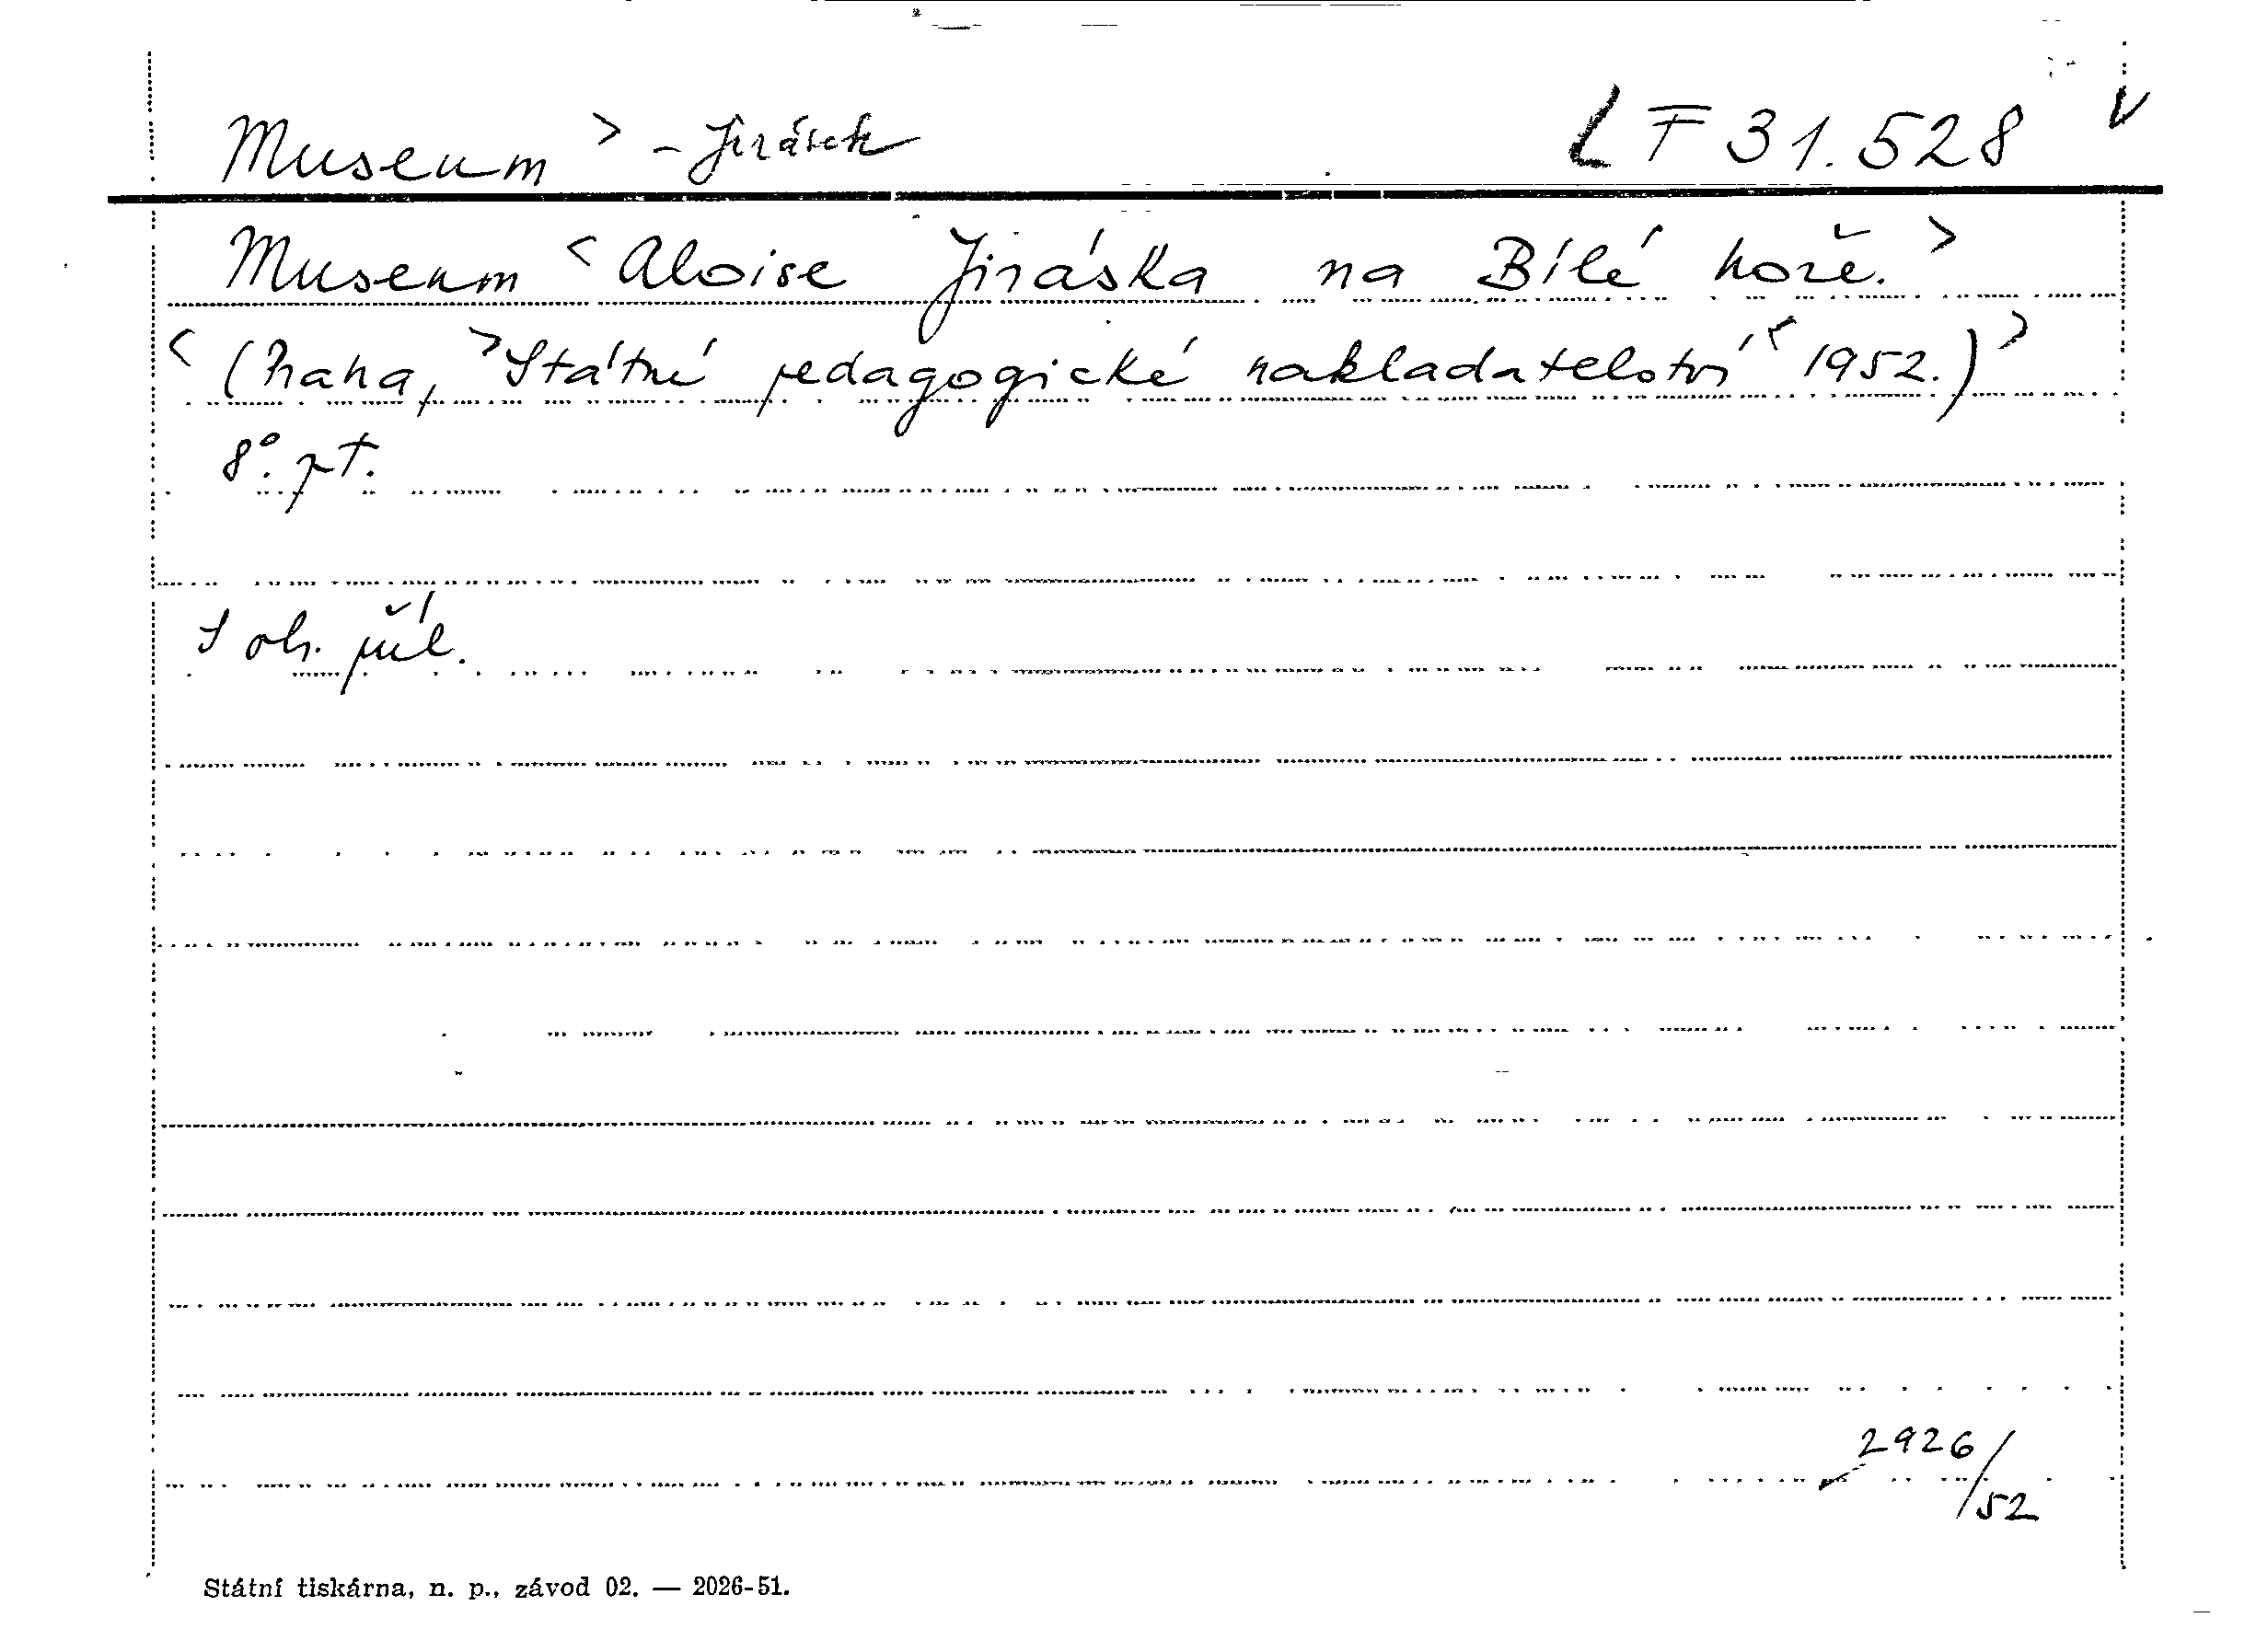 Museum > - Jirásek LF 31.528 V
Museum < Aloise Jiráska na Bílé hoře. >
< (Praha, > Státní pedagogické nakladatelství < 1952.) >
8°. pt.
S obr. příl.
2926/
/52
Státní tiskárna, n. p., závod 02. — 2026-51.